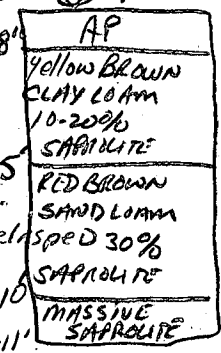 AP
8"
YELLOW BROWN
CLAY LOAM
10-20%
SAPROLITE
5
RED BROWN
SAND LOAM
30%
SAPROLITE
10'
MASSIVE
SAPROLITE
11'